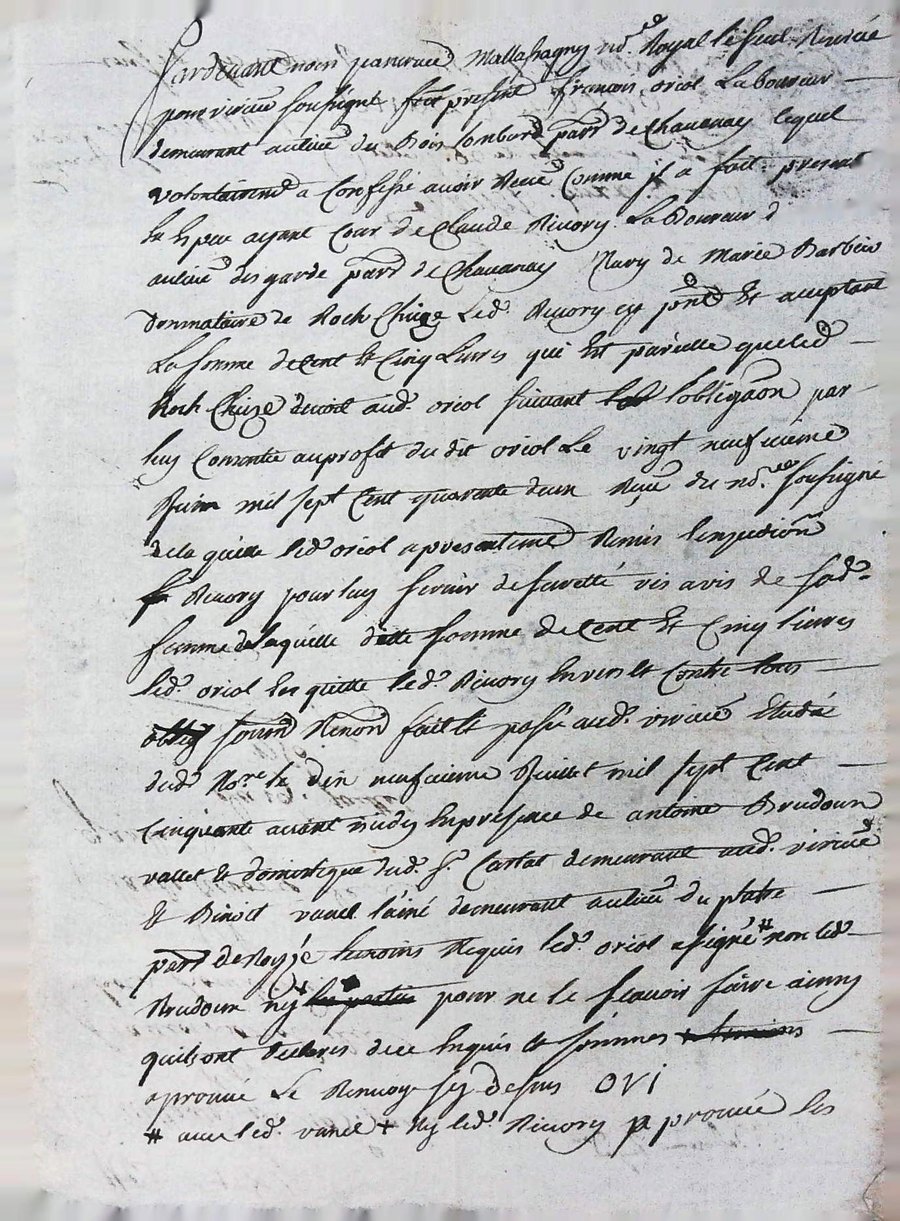 Pardevant nous pancrace Mallassagny no.re Royal le seul Reservé
pour virieu soussigné fut présent françois oriol Laboureur
demeurant au lieu du Bois Lombard parr de Chavanay lequel
volontairemt a Confessé avoir Receu Comme jl a fait présent
en Espece ayant Cour de Claude Rivory Laboureur d
au lieu des garde parr de Chavanay Mary de Marie Barbin
donnataire de Roch Chize Led. Rivory cy pnt Et acceptant
La somme de Cent Et Cinq Livres qui Est pareille que led
Roch Chize devoit aud. oriol suivant l'obligaon par
luy Consentie au profit du dit oriol Le vingt neufvieme
Juin mil sept Cent quarante deux Reçue du no.re soussigné
de la quelle led. oriol a presentement Remis l'expedion
Rivory pour luy servir de sureté vis avis de sad.
femme de laquelle dette somme de Cent Et Cinq livres
led. oriol En quitte led. Rivory Envers Et Contre tous
soumon Renon fait Et passé aud. virieu Etude
dud. No.re le dix neufvieme Juillet mil sept Cent
Cinquante avant midy En presence de antoine Brudoun
vallet Et domestique dud. Sr. Cartat demeurant aud. virieu
Et Benoit vanel l'ainé demeurant au lieu du platre
parr de Roysé temoins Requis led. oriol a signé # non led
Brudoun ny + pour ne le scavoir faire ainsy
quils ont declarés de ce Enquis Et sommés
aprouvé Le Renvoy cy dessus OVI
# avec led. vanel + Ny led. Rivory aprouvé les